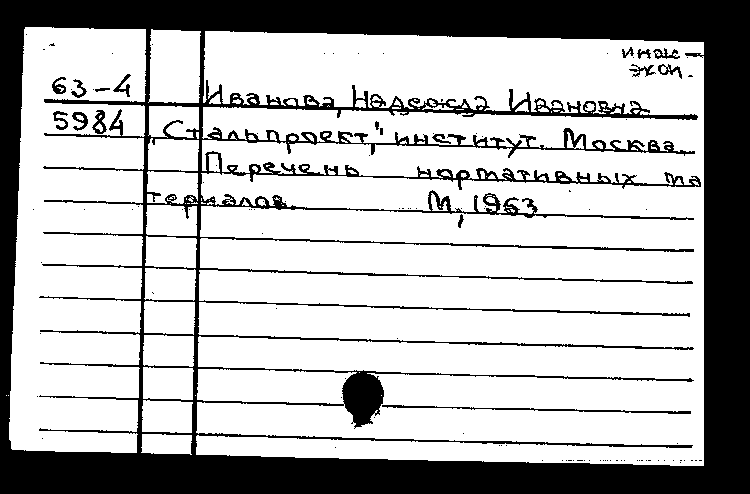 инж-
экон.
63-4 Иванова, Надежда Ивановна
5984 "Стальпроект", институт. Москва.
Перечень нормативных ма
териалов. М, 1963.